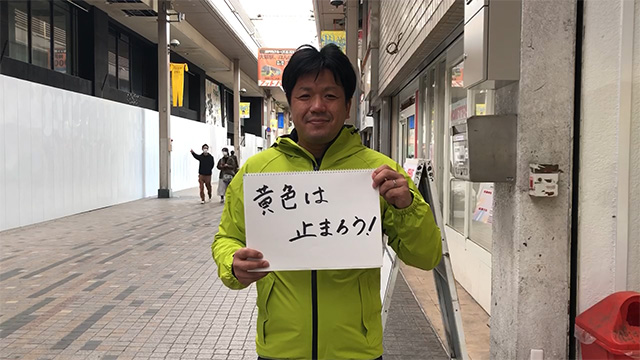 黄色は
止まろう!